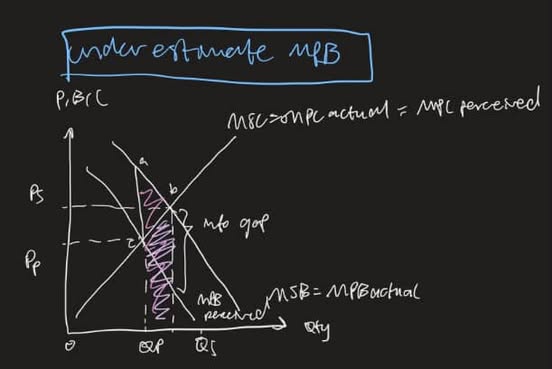 underestimate MPB
P,B,C
MSC=MPC actual = MPC perceived
a
Ps
b
info gap
c
Pp
MPB
perceived
MSB=MPB actual
Qty
O
QP
Qs